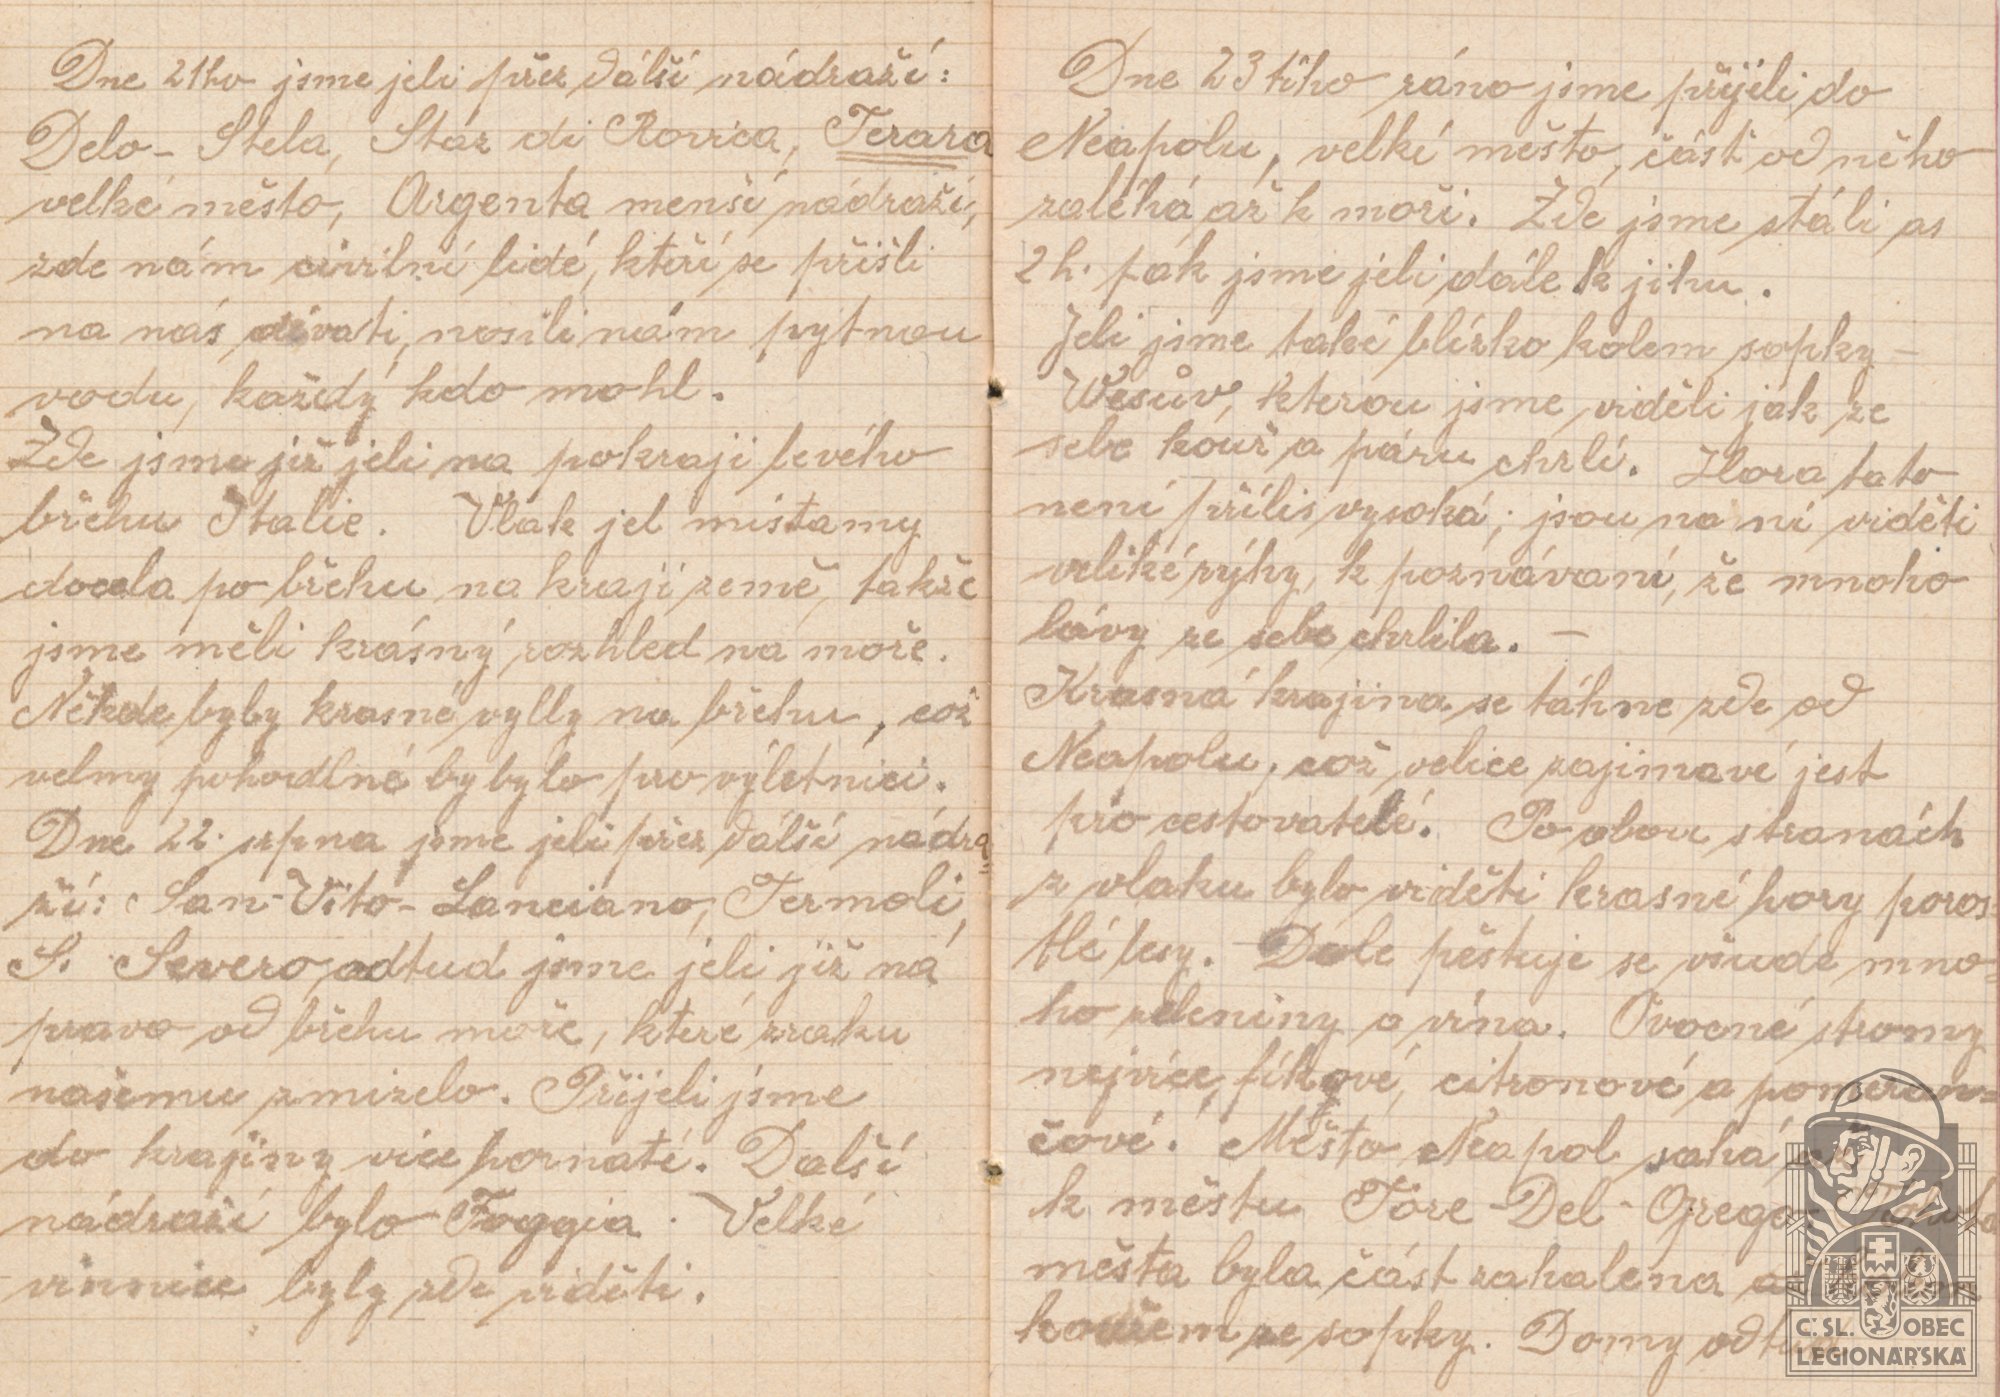 Dne 21ho jsme jeli přez ďálší nádraží:
Delo - Stela, Staz di Rovica, Terara
velké město, Argenta menší nádraží,
zde nám civilní lidé, kteří se přišli
na nás dívati, nosili nám pytnou
vodu, každý kdo mohl.
Zďe jsme již jeli na pokraji levého
břehu Italie. Vlak jel místamy
docela po břehu na kraji země, takže
jsme měli krásný rozhled na moře.
Někde byly krasné vylly na břehu, což
velmy pohodlné by bylo pro výletníci.
Dne 22. srpna jsme jeli přez ďálší nádra
ží: San-Vito-Lanciano, Termoli,
S. Severo odtud jsme jeli již ná
pravo oď břehu moře, které zraku
našemu zmizelo. Přijeli jsme
do krajiny více hornaté. Další
nádraží bylo Foggia. Velké
vinnice byly zďe viděti.
Dne 23tího ráno jsme přijeli do
Neapolu, velkí město, část oď něho
zaléhá až k moři. Zďe jsme stáli as
2 h. pak jsme jeli dále k jihu.
Jeli jsme také blízko kolem sopky -
Wesův, kterou jsme viděli jak ze
sebe kouř a páru chrlí. Hora tato
není příliš vysoká; jsou na ní viděti
veliké rýhy, k poznávaní, že mnoho
lávy ze sebe chrlila. -
Krasná krajina se táhne zďe oď
Neapolu, což velice zajimavé jest
pro cestovatelé. Po obou stranách
z vlaku bylo viděti krasné hory poros=
tlé lesy. Dole pěstuje se všude mno=
ho zeleniny a vína. Ovocné stromy
nejvíce, fíkové, citronové a pomeran=
čové. Město Neapol sahá až
k městu Tore-Del-Grego.
města byla část zahalena
kouřem ze sopky. Domy oďtud
Č. SL. OBEC
LEGIONÁŘSKÁ